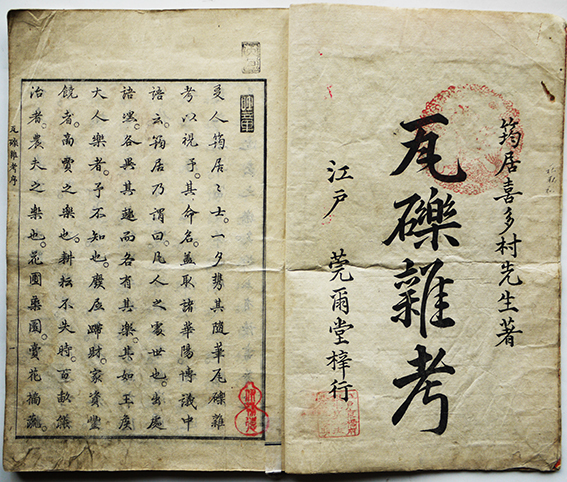 筠居喜多村先生著
瓦礫雜考
江戸　莞爾堂梓行
友人筠居々士。一夕携其隨筆瓦礫雜
考以視予。其命名。蓋取諸華陽博議中
語云。筠居乃謂曰。凡人之處世也。出處
語各異其趣。而各有其樂。其如王侯
大人樂者。予不知也。廢居蹛財。家資豐
饒者。商賈之樂也。耕耘不失時。百畝能
治者。農夫之樂也。花圃藥園。賣花摘蔬
瓦礫雜考序
一